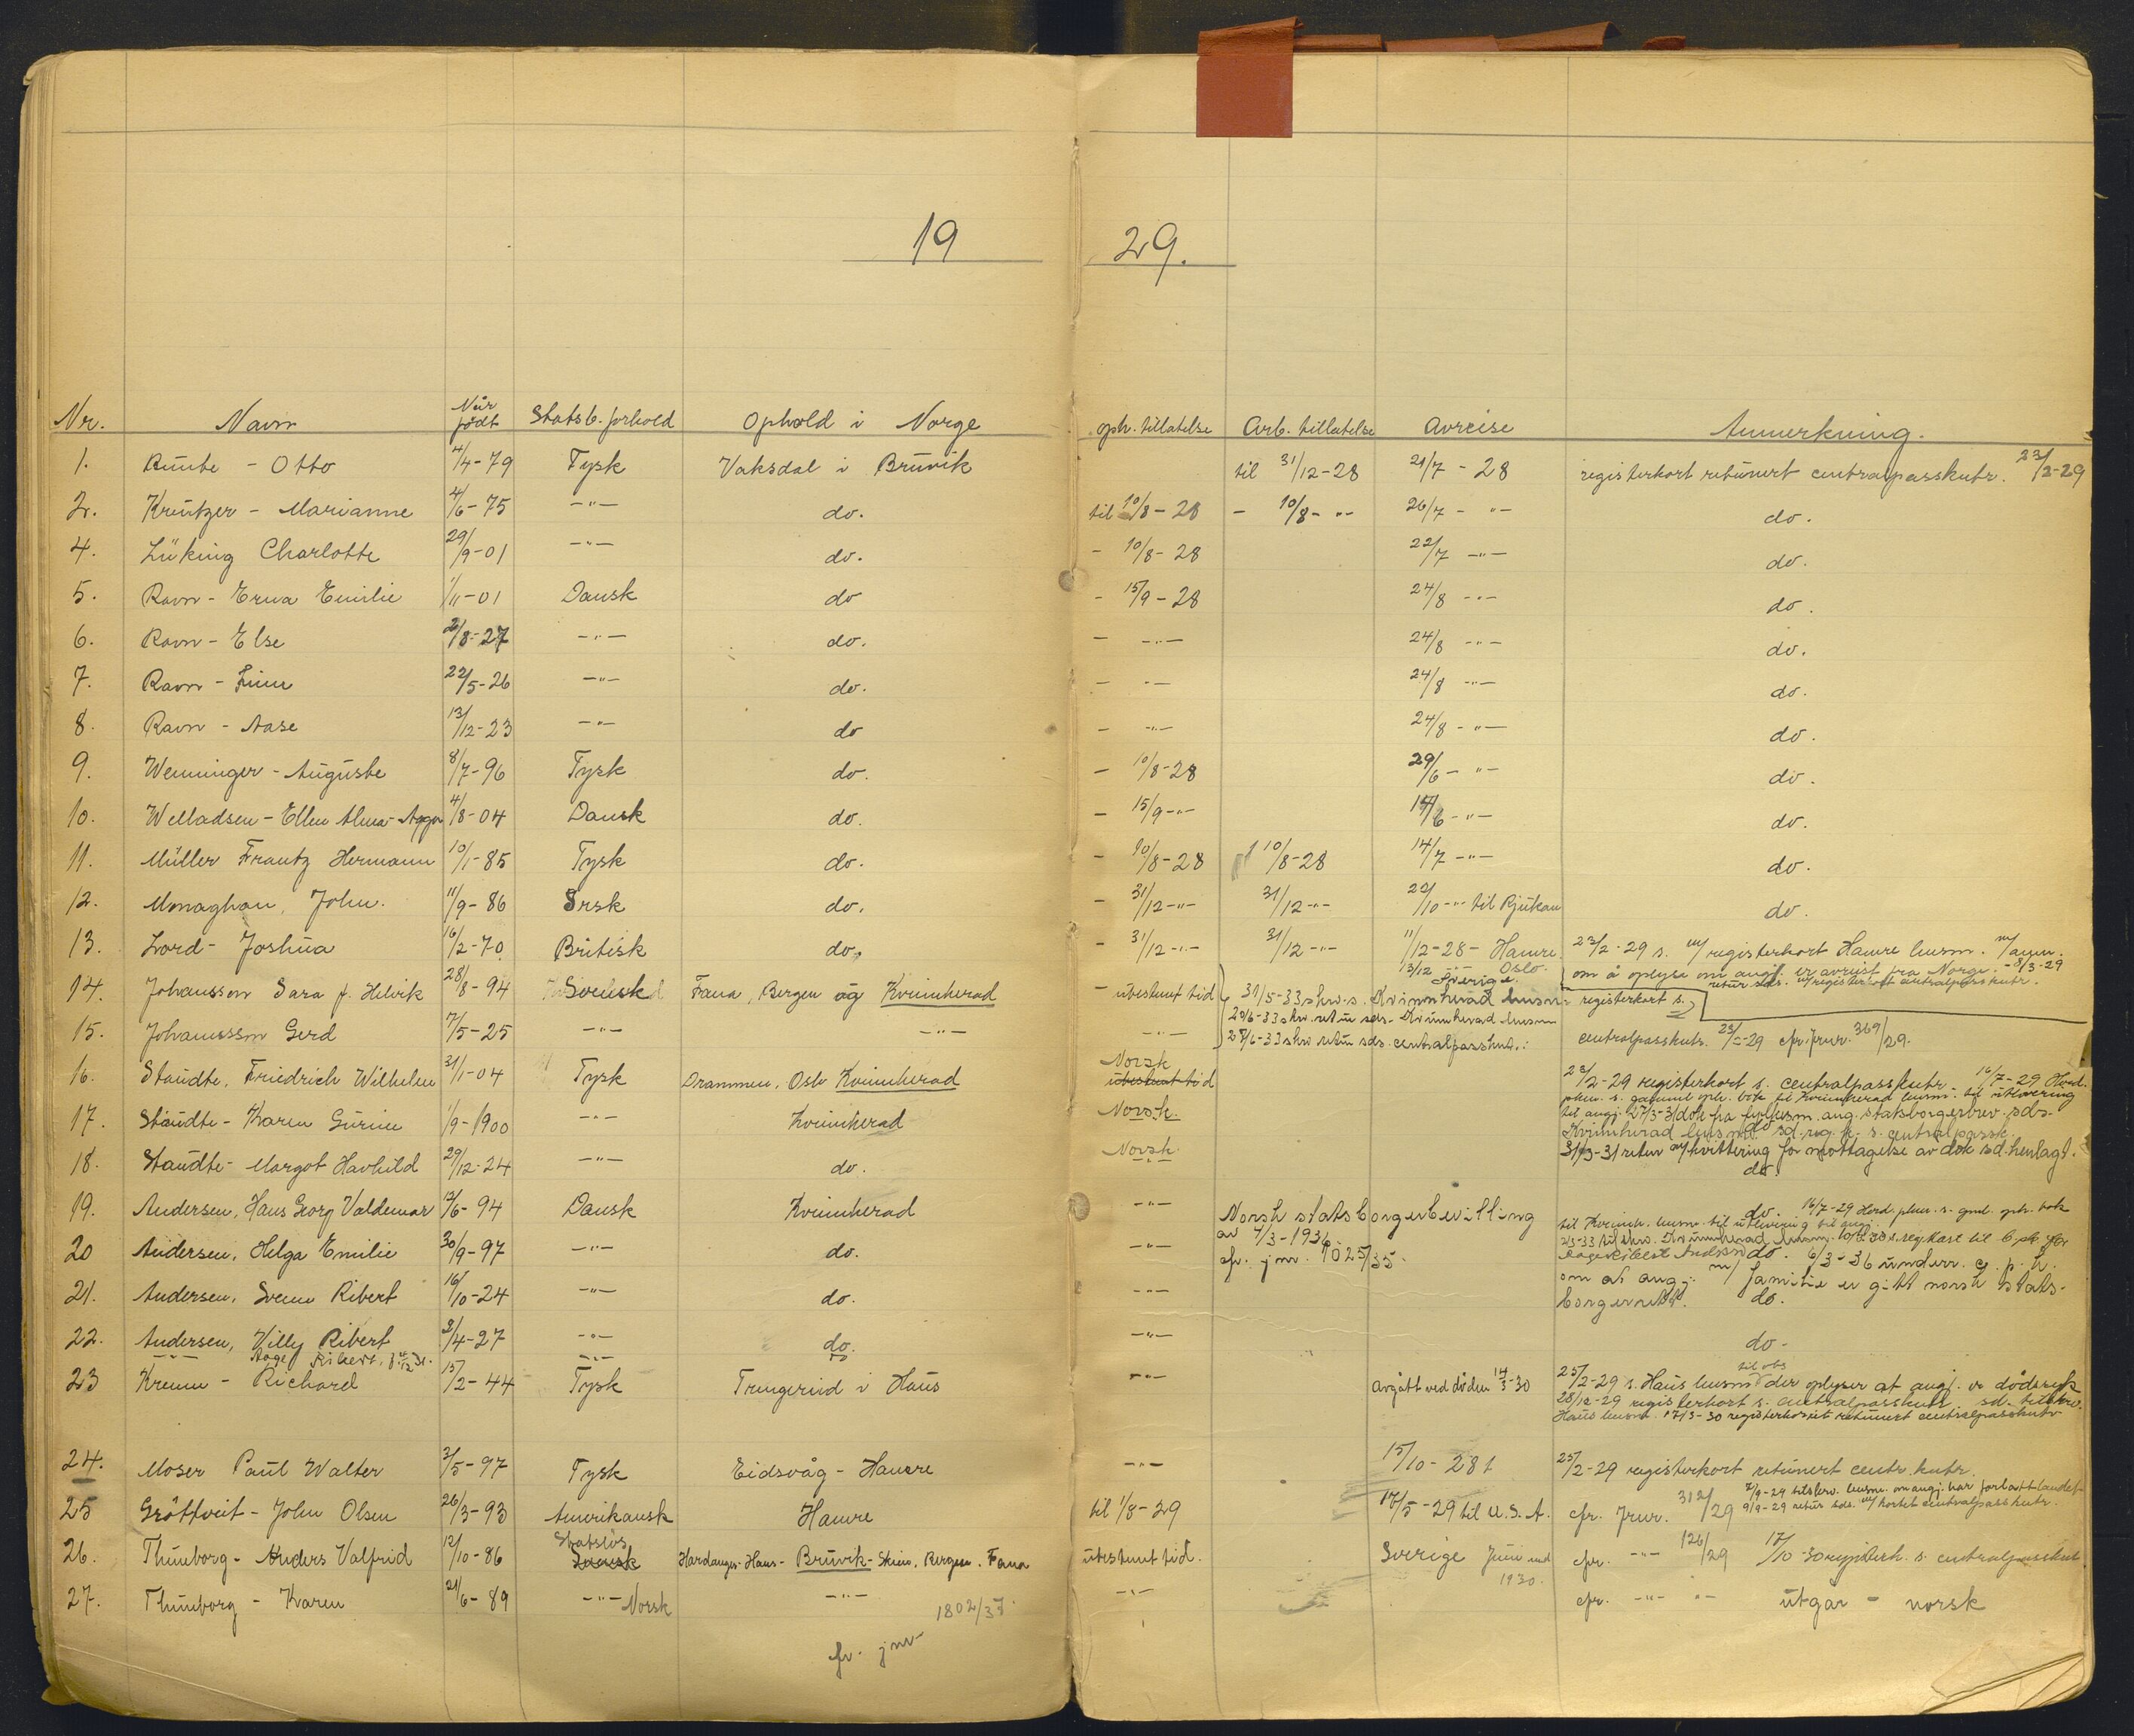 19 29.
Nr. Navn Når født Statsb. forhold Ophold i Norge oph. tillatelse Arb. tillatelse Avreise Anmerkning.
1. Runte - Otto 4/4-79 Tysk Vaksdal i Bruvik til 31/12-28 21/7 - 28 registerkort returnert centralpasskntr. 23/2-29
2. Kreutzer - Marianne 4/6-75 -"- do. til 10/8-28 - 10/8- "- 26/7 - "- do.
4. Lüking Charlotte 29/9-01 -"- do. - 10/8-28 22/7 -"- do.
5. Ravn - Erna Emilie 1/11-01 Dansk do - 15/9-28 24/8 -"- do.
6. Ravn - Else 2/8-27 -"- do. - -"- 24/8 -"- do.
7. Ravn - Finn 22/5-26 -"- do. - -"- 24/8 -"- do.
8. Ravn - Aase 13/12-23 -"- do - -"- 24/8 -"- do.
9. Wenninger - Auguste 8/7-96 Tysk do. - 10/8-28 29/6 - "- do.
10. Welladsen - Ellen Alma - 4/8-04 Dansk do. - 15/9 -"- 14/6 -"- do.
11. Müller Frantz Hermann 10/1-85 Tysk do. - 10/8-28 10/8-28 14/7 -"- do.
12. Monaghan, John. 11/9-86 Irsk do. - 31/12 -"- 31/12 -"- 22/10 -"- til Rjukan do.
13. Lord - Joshua 16/2-70 Britisk do. - 31/12 -"- 31/12 -"- 11/12-28 - Hamre. 23/2-29 s. m/ registerkort Hamre lensm. m/ anm.
13/12 -"- Oslo. om å oplyse om angj. er avreist fra Norge. - 8/3-29
Sverige. retur sds. m/ registerkort centralpasskntr.
14. Johansson Sara f. Helvik 28/8-94 Svensk Fana, Bergen og Kvinnherad - ubestemt tid 31/5-33 skr. s. Kvinnherad lensm. registerkort s.
29/6-33 skr. retur sds. Kvinnherad lensm
15. Johansson Gerd 7/5-25 -"- -"- -"- 28/6-33 skr retur sds. centralpassknt. centralpasskntr. 23/2-29 cfr. jnr. 369/29.
16. Staudte, Friedrich Wilhelm 31/1-04 Tysk Drammen, Oslo Kvinnherad Norsk ubestemt tid 23/2-29 registerkort s. centralpasskntr. 16/7-29 Hord.
pkm. s. gammel oph. bok til Kvinnherad lensm. til utlevering
17. Staudte - Karen Gurine 1/9-1900 -"- Kvinnherad Norsk. til angj. 27/3-31 dok fra fylkesm. ang. statsborgerbrev. sds.
Kvinnherad lensm. do sd. reg. k. s. centralpassk.
18. Staudte - Margot Havhild 29/12-24 -"- do. Norsk 31/3-31 retur m/ kvittering for mottagelse av dok sd. henlagt.
do
19. Andersen, Hans Georg Valdemar 12/6-94 Dansk Kvinnherad -"- Norsk statsborgerbevilling do. 16/7-29 Hord. pkm. s. gml. oph. bok
av 7/3-1936 til Kvinnh. lensm. til utlevering til angj.
20 Andersen, Helga Emilie 30/9-97 -"- do. -"- cfr. jnr. 1025/35. do. 6/3-36 underr. c. p. k.
21. Andersen, Svenn Ribert 16/10-24 -"- do. -"- om at angj. m/ familie er gitt norsk stats-
borgerrett. do.
22. Andersen, Willy Ribert 3/4-27 -"- do. -"- do.
-"- Aage Ribert, -"- do
23 Kremm - Richard 15/2-44 Tysk Trengereid i Haus -"- avgått ved døden 14/3-30 25/2-29 s. Haus lensm til obs der oplyser at angj. er dødssyk
28/12-29 registerkort s. centralpasskntr. sd. tilskr.
Haus lensm. 17/3-30 registerkortet returnert centralpasskntr
24. Moser Paul Walter 3/5-97 Tysk Eidsvåg - Hamre -"- 15/10-28 25/2-29 registerkort returnert centr. kntr.
7/9-29 tilskrev. lensm. om angj. har forlatt landet
25 Gröttveit - John Olsen 26/3-93 Amerikansk Hamre til 1/8-29 17/5-29 til U.S.A. cfr. Jnr. 312/29 9/9-29 retur sds. m/ kortet centralpasskntr.
26. Thunborg - Anders Valfrid 12/10-86 Statsløs Svensk Hardanger - Haus - Bruvik - Bergen, Fana ubestemt tid. Sverige Juni 1930. cfr. -"- 126/29 17/10-30 registerk. s. centralpassknt
27. Thunborg - Karen 21/6-89 -"- Norsk -"- -"- cfr. -"- "- utgår - norsk
fr. jnr 1802/37.